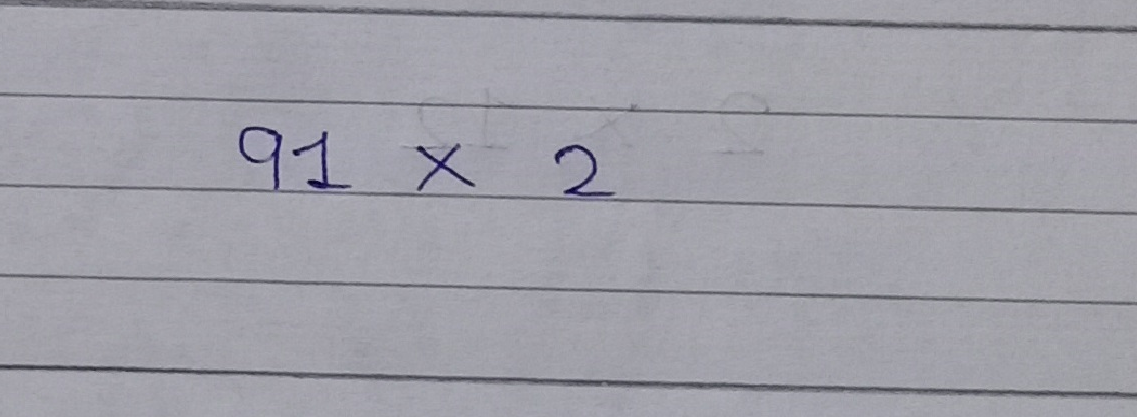 91 × 2